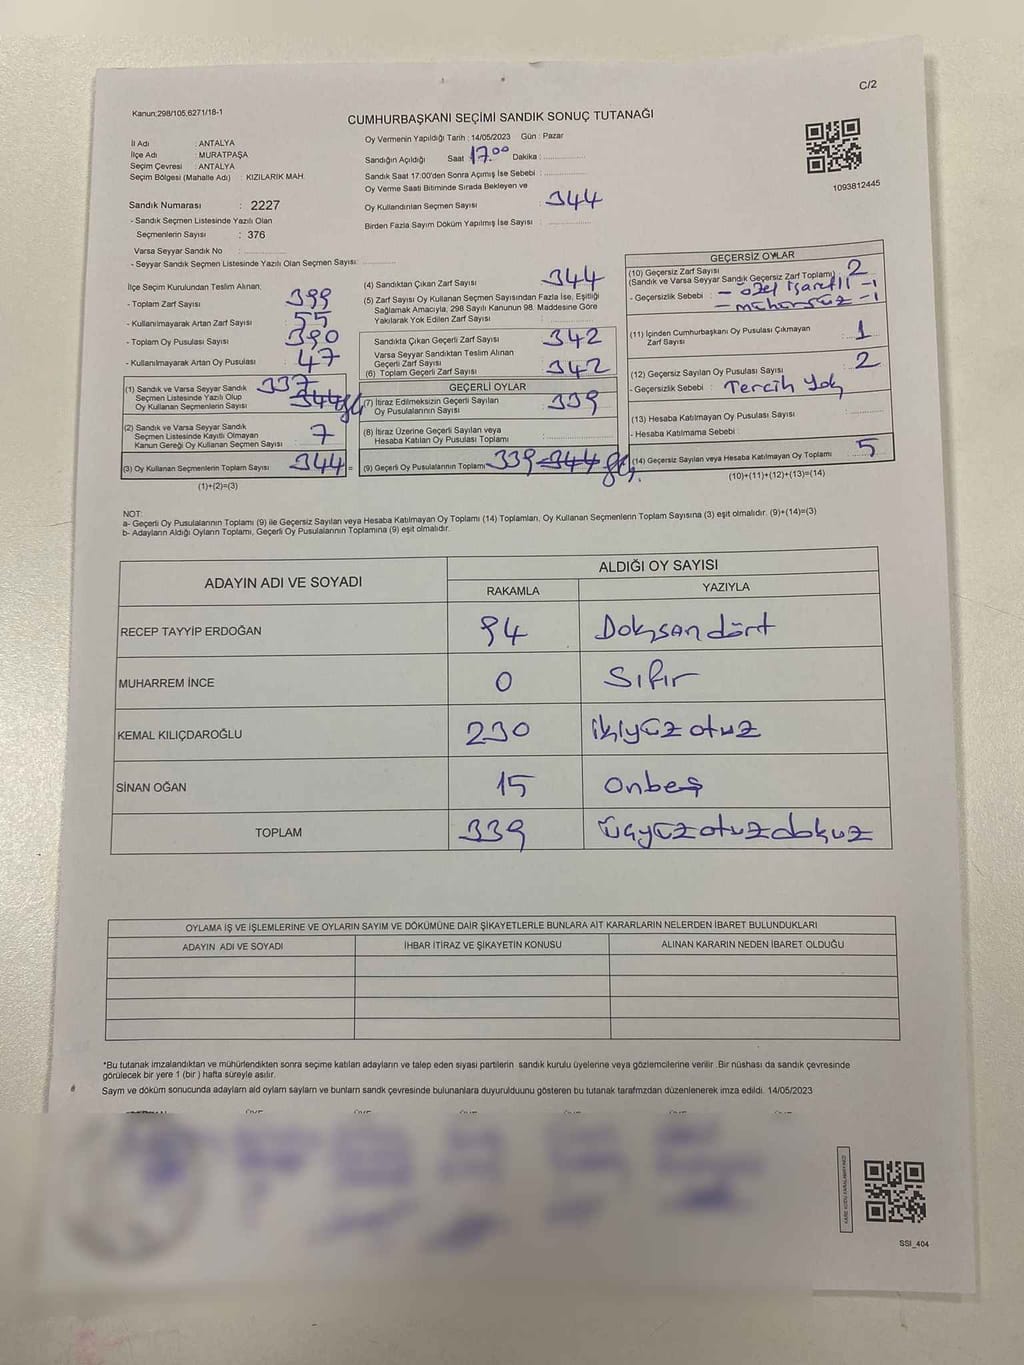 C/2
Kanun;298/105,6271/18-1
CUMHURBAŞKANI SEÇİMİ SANDIK SONUÇ TUTANAĞI
İl Adı : ANTALYA
İlçe Adı : MURATPAŞA
Seçim Çevresi : ANTALYA
Seçim Bölgesi (Mahalle Adı) : KIZILARIK MAH.
Sandık Numarası : 2227
- Sandık Seçmen Listesinde Yazılı Olan
Seçmenlerin Sayısı : 376
Varsa Seyyar Sandık No :
- Seyyar Sandık Seçmen Listesinde Yazılı Olan Seçmen Sayısı:
Oy Vermenin Yapıldığı Tarih : 14/05/2023 Gün : Pazar
Sandığın Açıldığı Saat 17.00 Dakika :
Sandık Saat 17:00'den Sonra Açımış İse Sebebi :
Oy Verme Saati Bitiminde Sırada Bekleyen ve
Oy Kullandırılan Seçmen Sayısı : 344
Birden Fazla Sayım Döküm Yapılmış İse Sayısı :
1093812445
İlçe Seçim Kurulundan Teslim Alınan;
- Toplam Zarf Sayısı : 399
- Kullanılmayarak Artan Zarf Sayısı : 55
- Toplam Oy Pusulası Sayısı : 390
- Kullanılmayarak Artan Oy Pusulası : 47
(1) Sandık ve Varsa Seyyar Sandık 337
Seçmen Listesinde Yazılı Olup 344
Oy Kullanan Seçmenlerin Sayısı
(2) Sandık ve Varsa Seyyar Sandık
Seçmen Listesinde Kayıtlı Olmayan 7
Kanun Gereği Oy Kullanan Seçmen Sayısı :
(3) Oy Kullanan Seçmenlerin Toplam Sayısı 344 =
(1)+(2)=(3)
(4) Sandıktan Çıkan Zarf Sayısı : 344
(5) Zarf Sayısı Oy Kullanan Seçmen Sayısından Fazla İse, Eşitliği
Sağlamak Amacıyla, 298 Sayılı Kanunun 98. Maddesine Göre
Yakılarak Yok Edilen Zarf Sayısı :
Sandıkta Çıkan Geçerli Zarf Sayısı : 342
Varsa Seyyar Sandıktan Teslim Alınan
Geçerli Zarf Sayısı :
(6) Toplam Geçerli Zarf Sayısı : 342
GEÇERLİ OYLAR
(7) İtiraz Edilmeksizin Geçerli Sayılan
Oy Pusulalarının Sayısı : 339
(8) İtiraz Üzerine Geçerli Sayılan veya
Hesaba Katılan Oy Pusulası Toplamı :
(9) Geçerli Oy Pusulalarının Toplamı 339 344
GEÇERSİZ OYLAR
(10) Geçersiz Zarf Sayısı
(Sandık ve Varsa Seyyar Sandık Geçersiz Zarf Toplamı) 2
- Geçersizlik Sebebi : - özel işaretli -1
- mühürsüz -1
(11) İçinden Cumhurbaşkanı Oy Pusulası Çıkmayan
Zarf Sayısı : 1
(12) Geçersiz Sayılan Oy Pusulası Sayısı : 2
- Geçersizlik Sebebi : Tercih Yok
(13) Hesaba Katılmayan Oy Pusulası Sayısı :
- Hesaba Katılmama Sebebi :
(14) Geçersiz Sayılan veya Hesaba Katılmayan Oy Toplamı : 5
(10)+(11)+(12)+(13)=(14)
NOT:
a- Geçerli Oy Pusulalarının Toplamı (9) ile Geçersiz Sayılan veya Hesaba Katılmayan Oy Toplamı (14) Toplamları, Oy Kullanan Seçmenlerin Toplam Sayısına (3) eşit olmalıdır. (9)+(14)=(3)
b- Adayların Aldığı Oyların Toplamı, Geçerli Oy Pusulalarının Toplamına (9) eşit olmalıdır.
ADAYIN ADI VE SOYADI
ALDIĞI OY SAYISI
RAKAMLA YAZIYLA
RECEP TAYYİP ERDOĞAN 94 Doksan dört
MUHARREM İNCE 0 Sıfır
KEMAL KILIÇDAROĞLU 230 ikiyüz otuz
SİNAN OĞAN 15 Onbeş
TOPLAM 339 üçyüz otuz dokuz
OYLAMA İŞ VE İŞLEMLERİNE VE OYLARIN SAYIM VE DÖKÜMÜNE DAİR ŞİKAYETLERLE BUNLARA AİT KARARLARIN NELERDEN İBARET BULUNDUKLARI
ADAYIN ADI VE SOYADI İHBAR İTİRAZ VE ŞİKAYETİN KONUSU ALINAN KARARIN NEDEN İBARET OLDUĞU
*Bu tutanak imzalandıktan ve mühürlendikten sonra seçime katılan adayların ve talep eden siyasi partilerin sandık kurulu üyelerine veya gözlemcilerine verilir .Bir nüshası da sandık çevresinde
görülecek bir yere 1 (bir ) hafta süreyle asılır.
Sayım ve döküm sonucunda adayların ald oylarn saylarn ve bunlarn sandk çevresinde bulunanlara duyurulduunu gösteren bu tutanak tarafmzdan düzenlenerek imza edildi. 14/05/2023
SSI_404